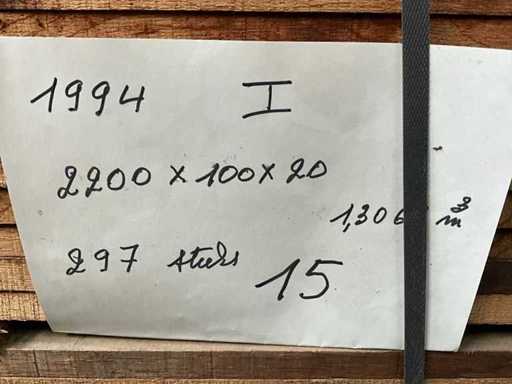 1994 I
2200 x 100 x 20
1,306 m³
297 stuks 15